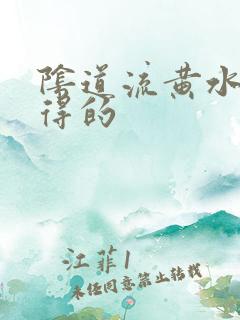 陰道流黄水
得的
江菲1
未经同意禁止转载